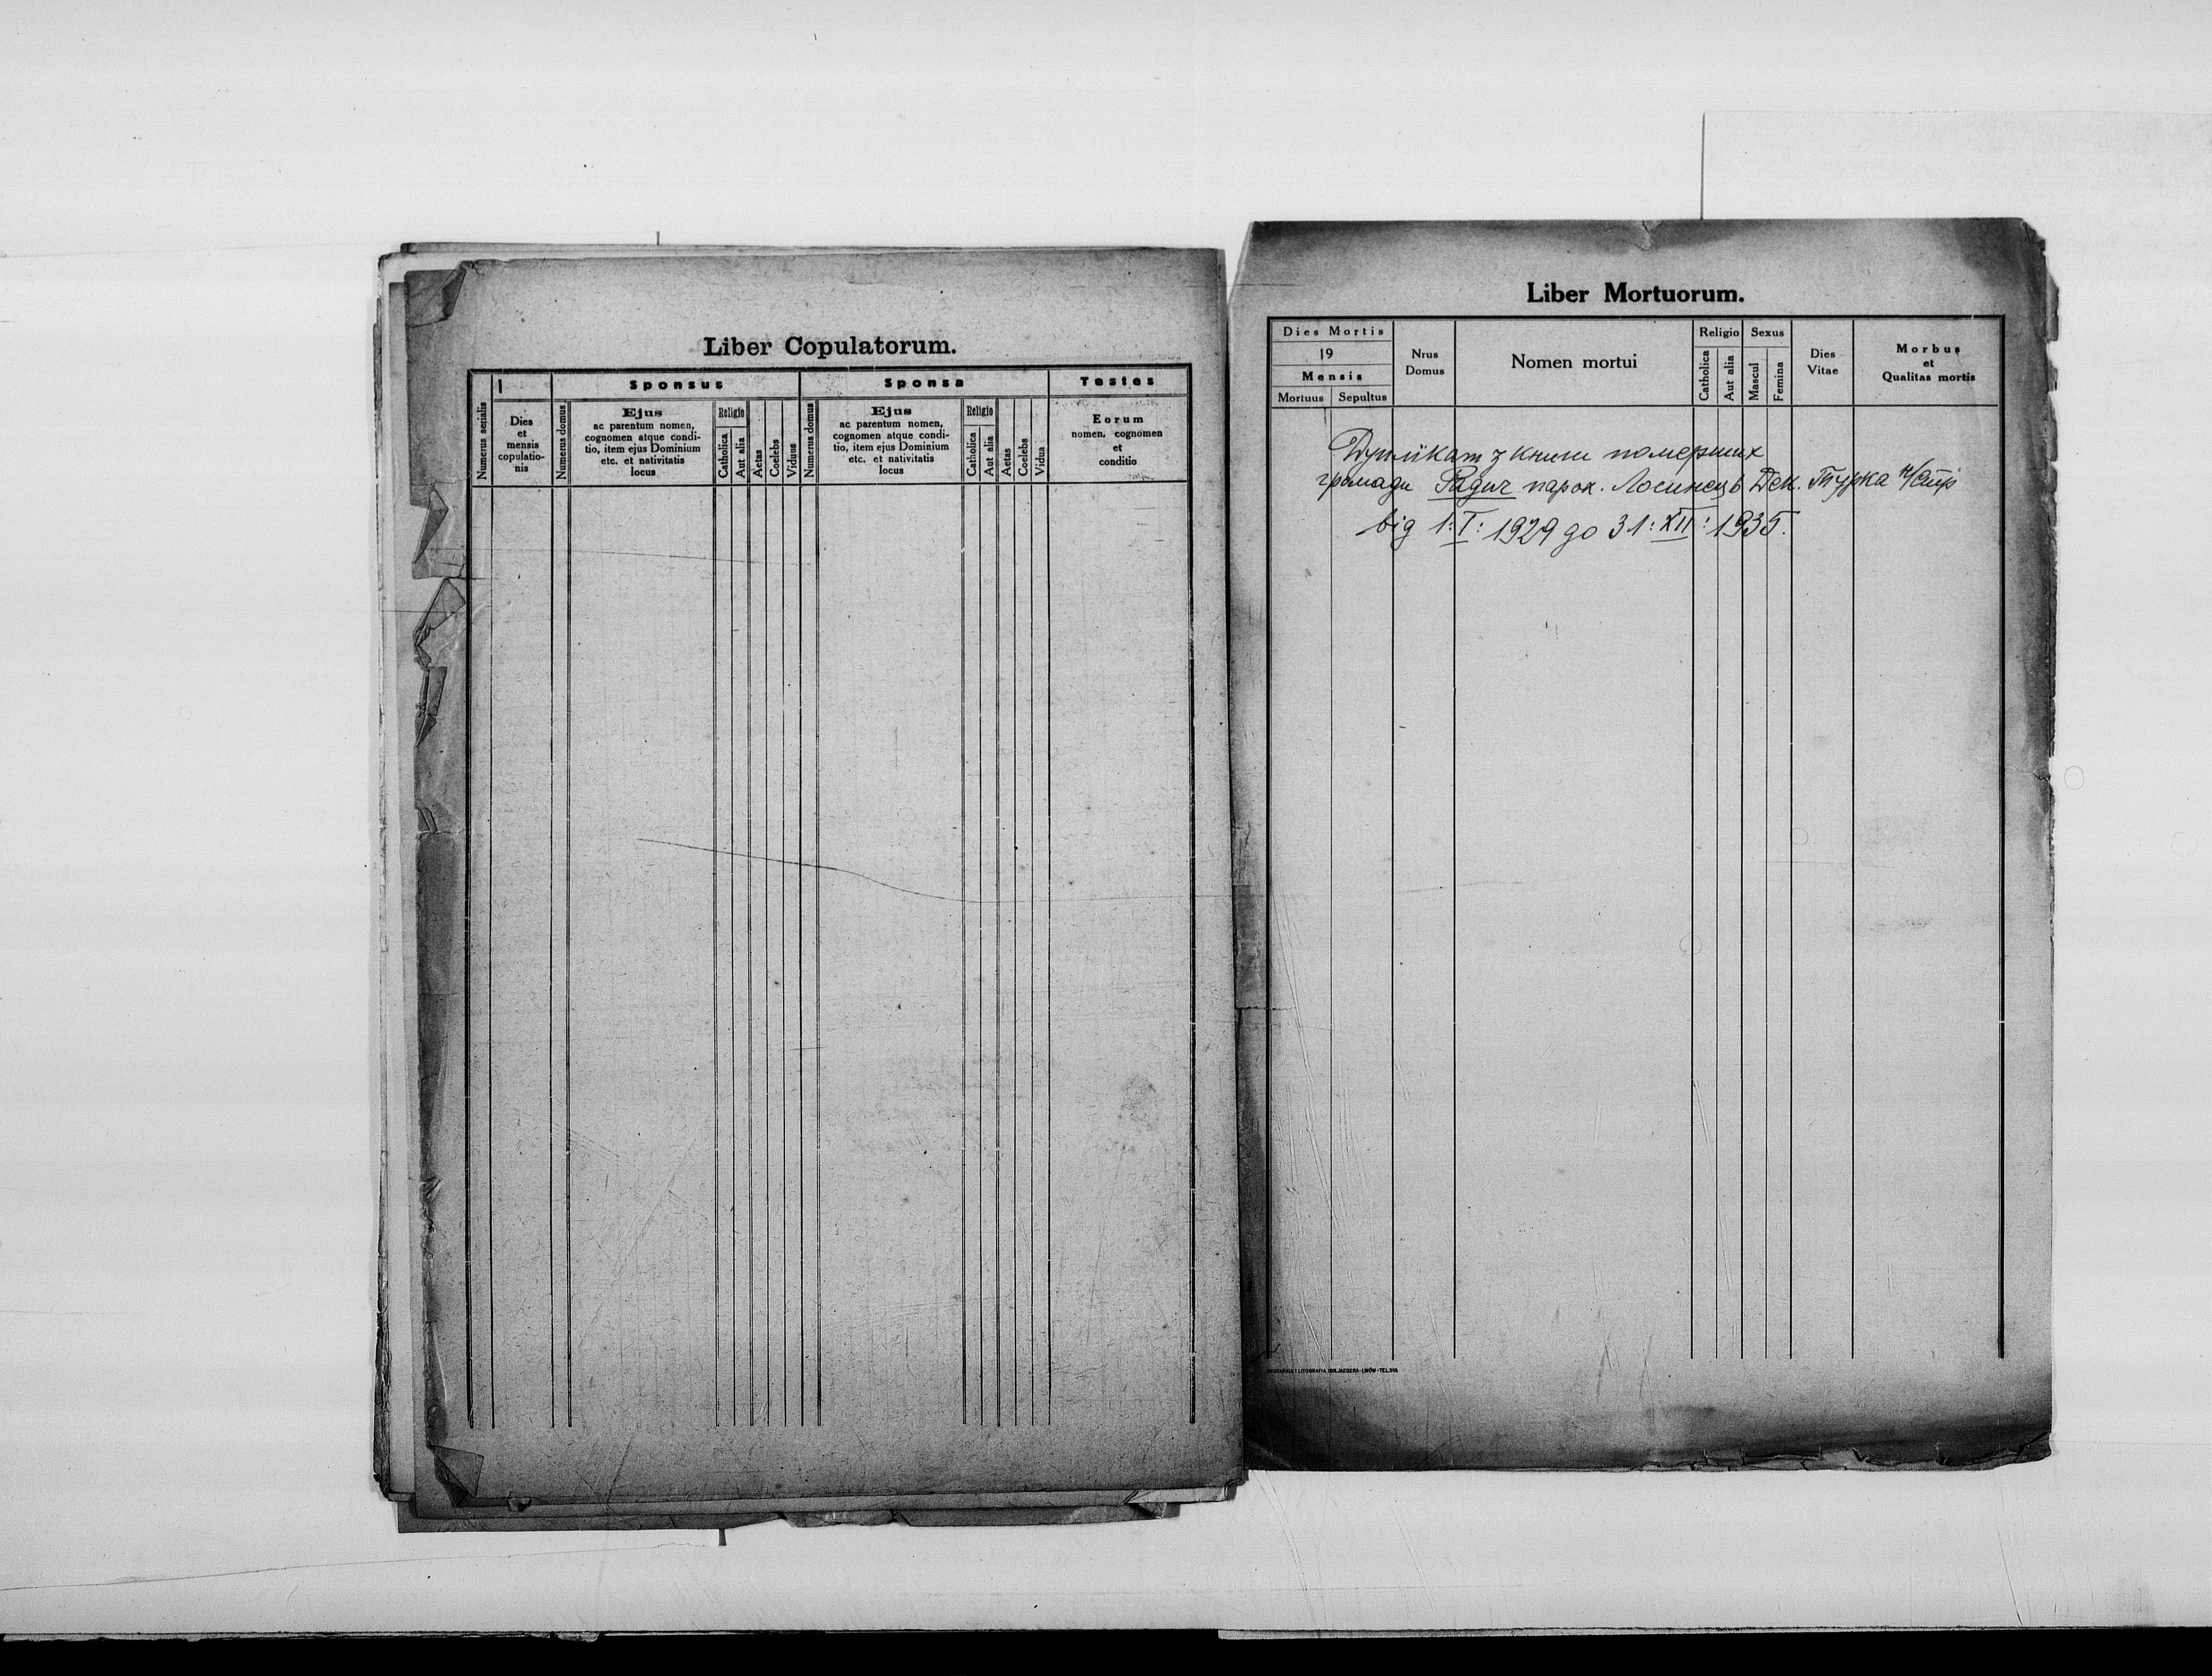 Liber Copulatorum.
Numerus serialis
1
Dies
et
mensis
copulatio-
nis
Sponsus
Numerus domus
Ejus
ac parentum nomen,
cognomen atque condi-
tio, item ejus Dominium
etc. et nativitatis
locus
Religio
Catholica
Aut alia
Aetas
Coelebs
Viduus
Sponsa
Numerus domus
Ejus
ac parentum nomen,
cognomen atque condi-
tio, item ejus Dominium
etc. et nativitatis
locus
Religio
Catholica
Aut alia
Aetas
Coelebs
Vidua
Testes
Eorum
nomen, cognomen
et
conditio
Liber Mortuorum.
Dies Mortis
19
Mensis
Mortuus
Sepultus
Nrus
Domus
Nomen mortui
Religio
Catholica
Aut alia
Sexus
Mascul
Femina
Dies
Vitae
Morbus
et
Qualitas mortis
Дуплікат з книги померших
громади Радич парох. Лосинець Дек. Турка н/Стр
від 1: I: 1929 до 31: XII: 1935.